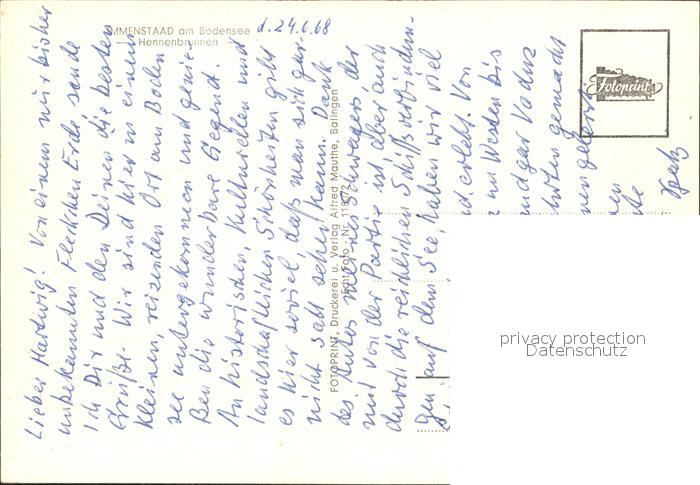 IMMENSTAAD am Bodensee
Hennenbrunnen
d. 24.6.68
Lieber Hartwig! Von einem mir bisher
unbekannten Fleckchen Erde sende
ich Dir und den Deinen die besten
Grüße. Wir sind hier in einem
kleinen, reizenden Ort am Boden
see untergekommen und genie-
ßen die wunderbare Gegend.
An historischen, kulturellen und
landschaftlichen Schönheiten gibt
es hier soviel, daß man sich gar
nicht satt sehen kann. Dank
des Autos meines Schwagers der
mit von der Partie ist aber auch
durch die reichlichen Schiffsverbindun-
gen auf dem See, haben wir viel
erlebt. Von
im Westen bis
gar Vaduz
gemacht
FOTOPRINT, Druckerei u. Verlag Alfred Mauthe, Balingen
Echt Foto - Nr.
Fotoprint
privacy protection
Datenschutz